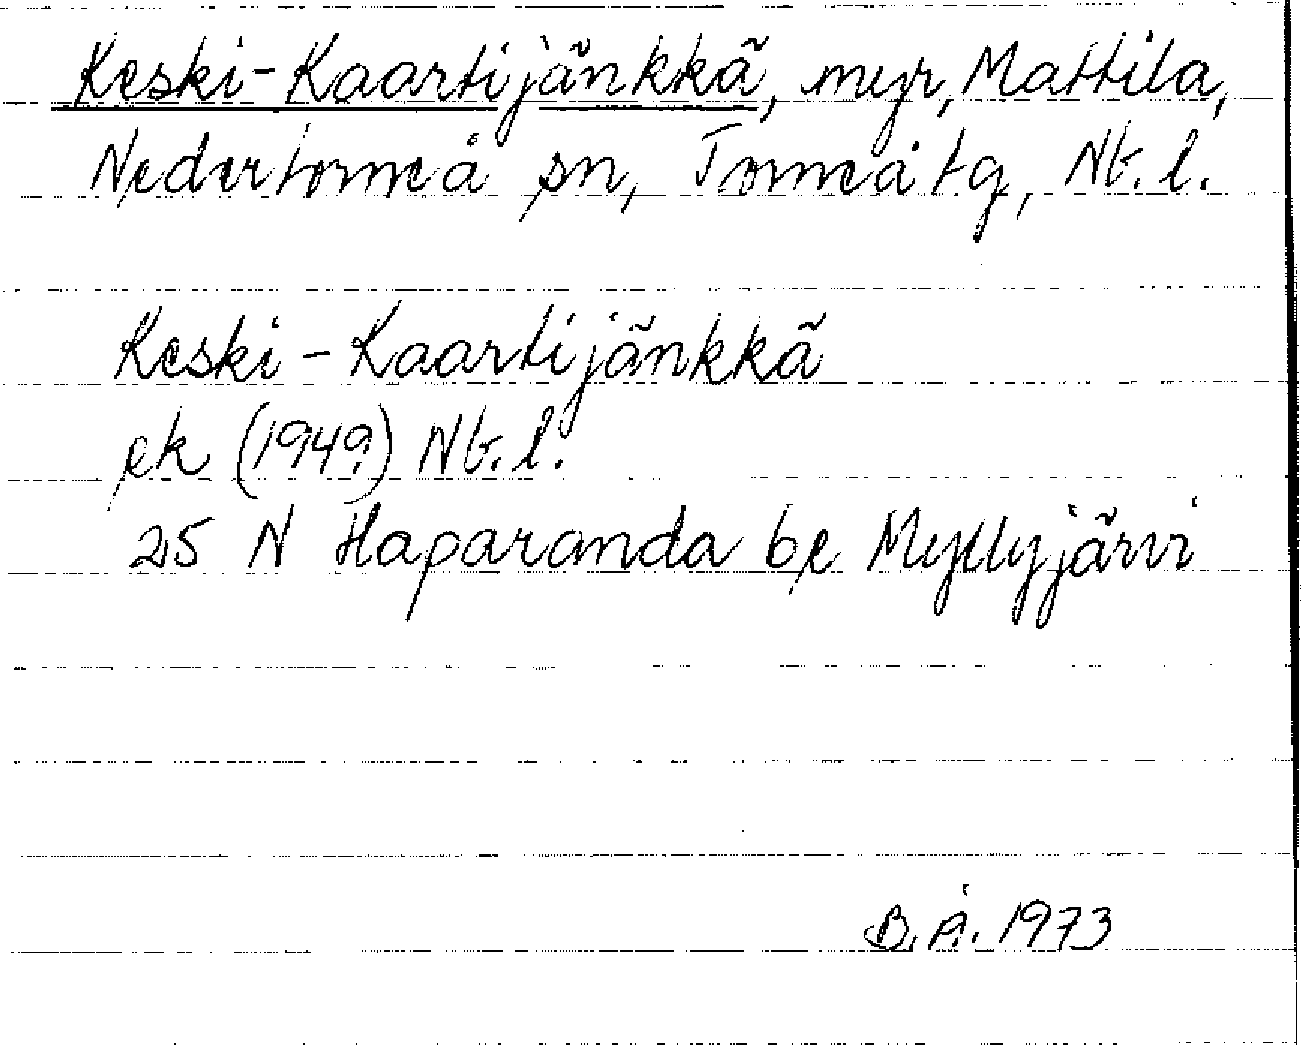 Keski-Kaartijänkkä, myr, Mattila,
Nedertorneå sn, Torneå tg, Nb.l.
Keski-Kaartijänkkä
ek (1949) Nb.l.
25 N Haparanda be Myllyjärvi
B.Å. 1973